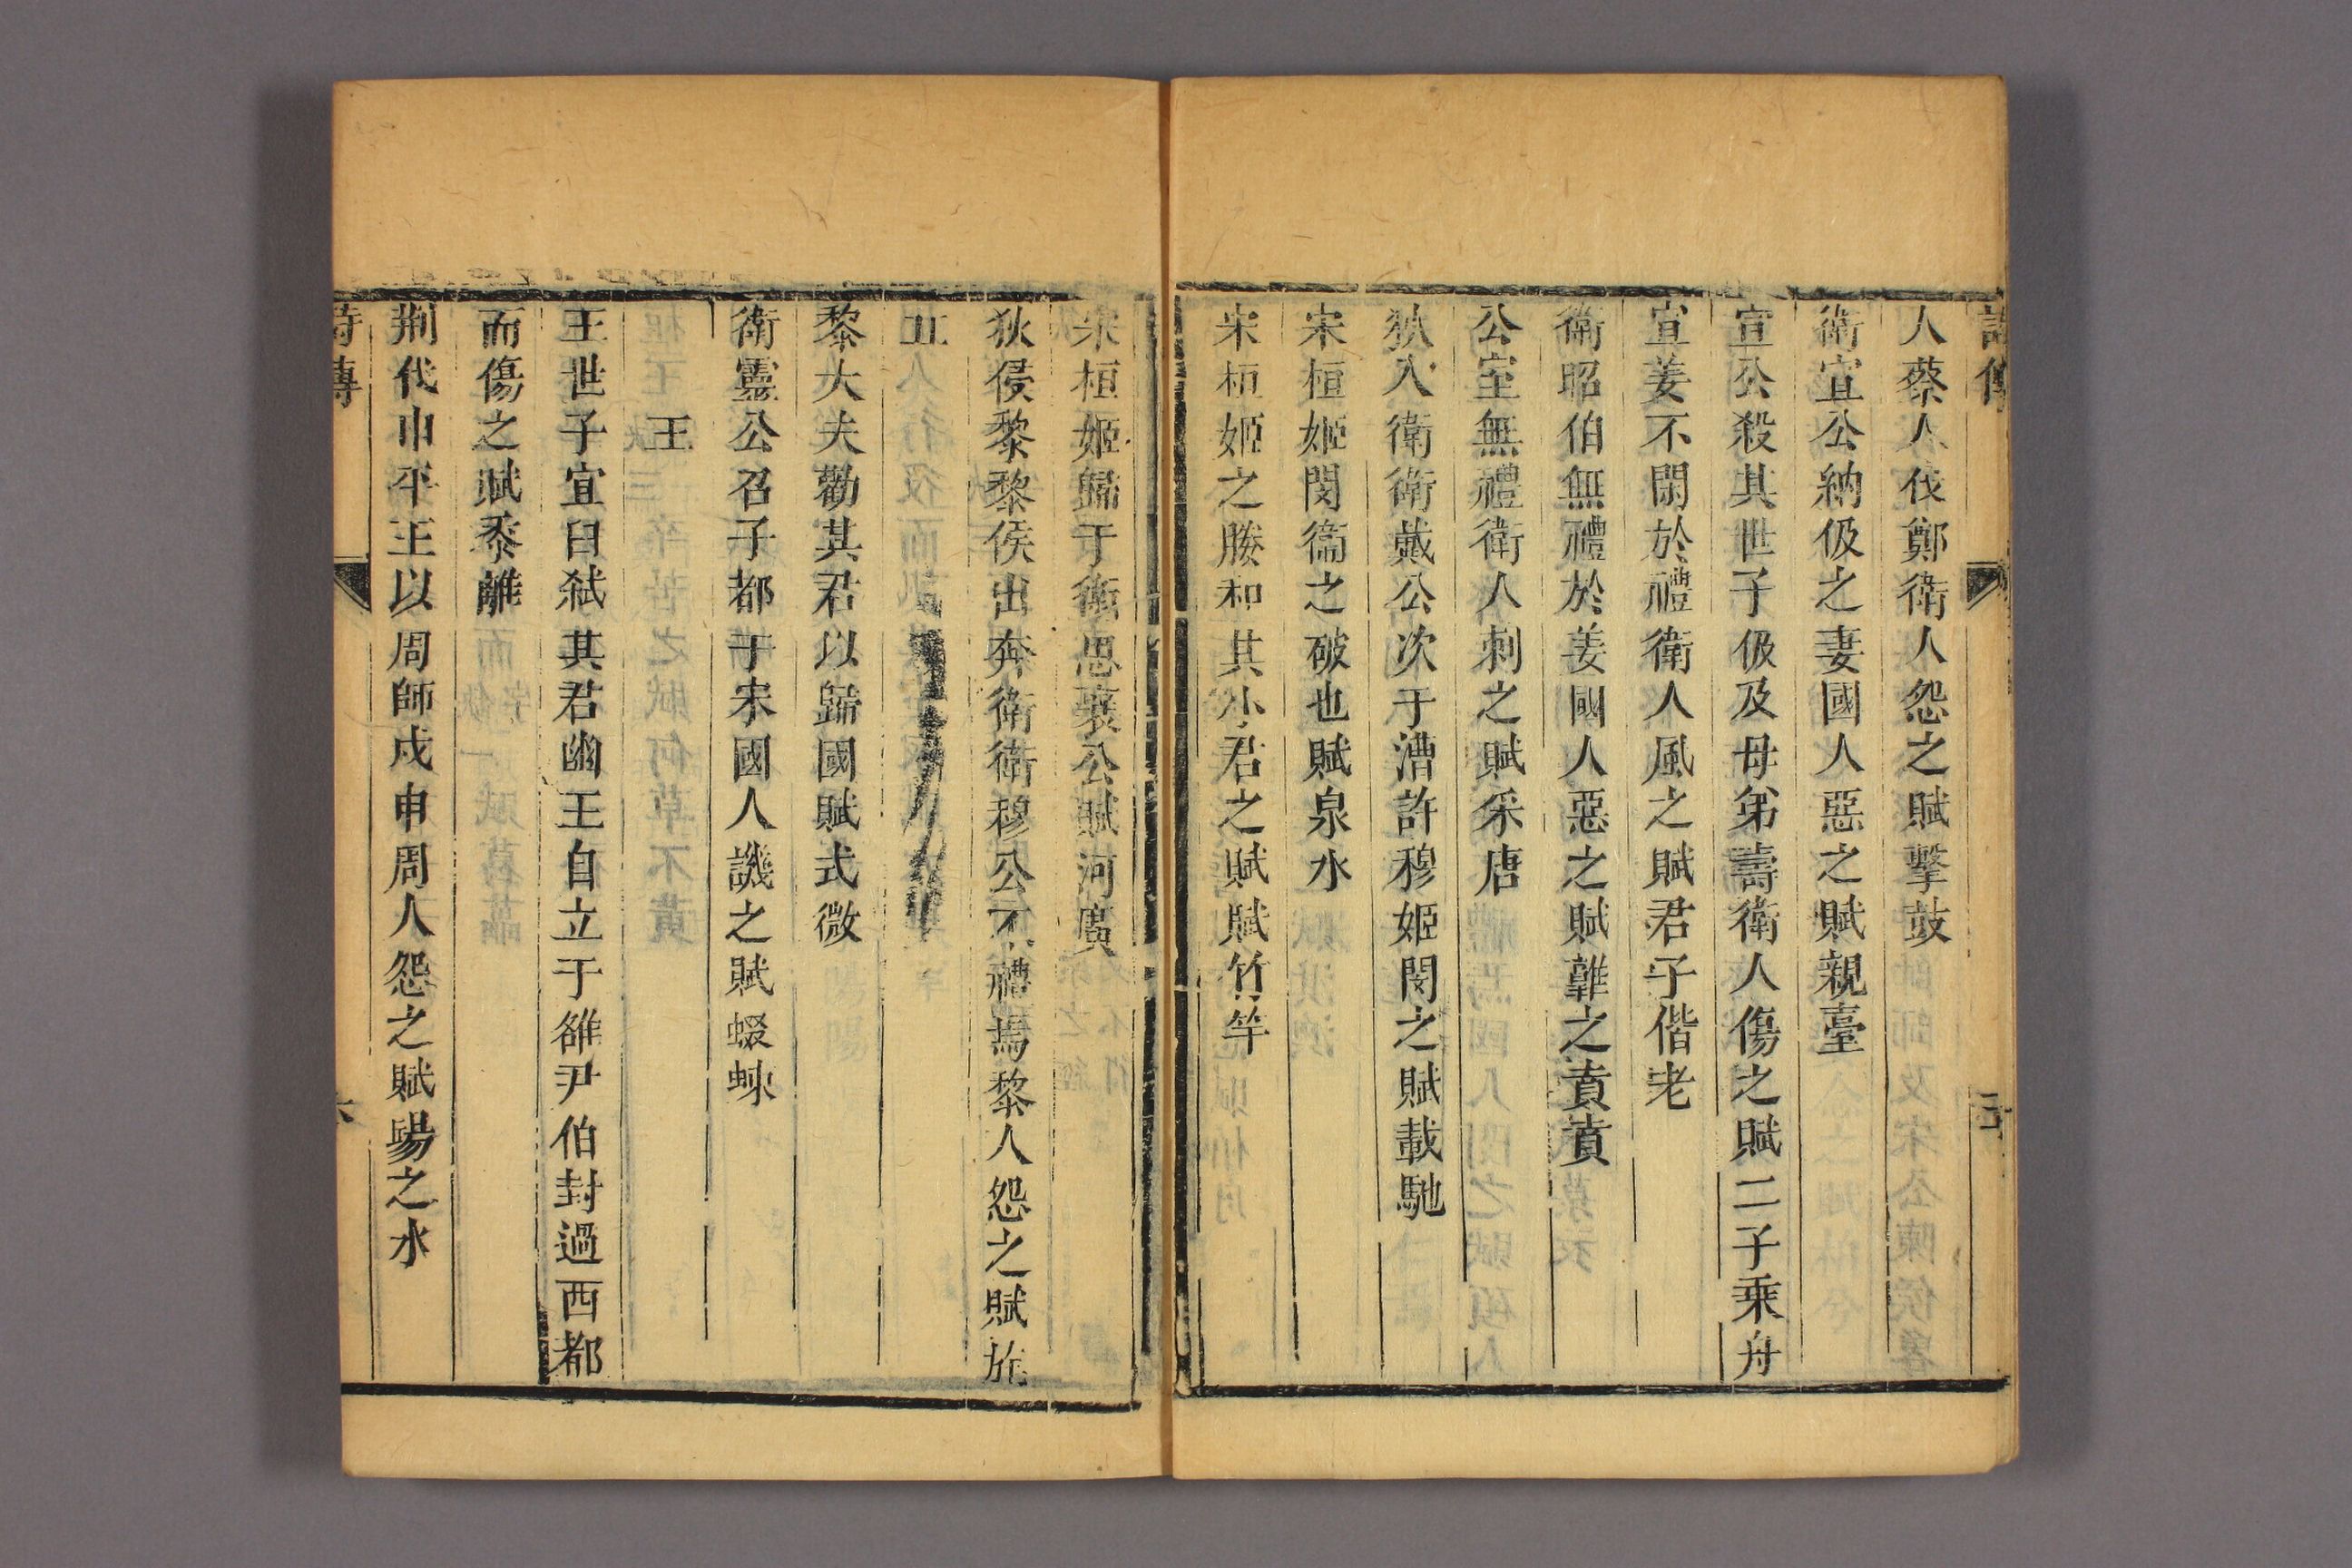 詩傳
人蔡人伐鄭衛人怨之賦擊鼓
衛宣公納伋之妻國人惡之賦親臺
宣公殺其世子伋及母弟壽衛人傷之賦二子乘舟
宣姜不閑於禮衛人風之賦君子偕老
衛昭伯無禮於姜國人惡之賦雗之賁賁
公室無禮衛人刺之賦采唐
狄入衛衛戴公次于漕許穆姬閔之賦載馳
宋桓姬閔衛之破也賦泉水
宋桓姬之媵和其小君之賦賦竹竿
宋桓姬歸于衛思襄公賦河廣
狄侵黎黎侯出奔衛衛穆公不禮焉黎人怨之賦旄
丘
黎大夫勸其君以歸國賦式微
衛靈公召子都于宋國人譏之賦蝃蝀
王
王世子宜臼弒其君幽王自立于雒尹伯封過西都
而傷之賦黍離
荆伐申平王以周師戍申周人怨之賦昜之水
詩傳
六